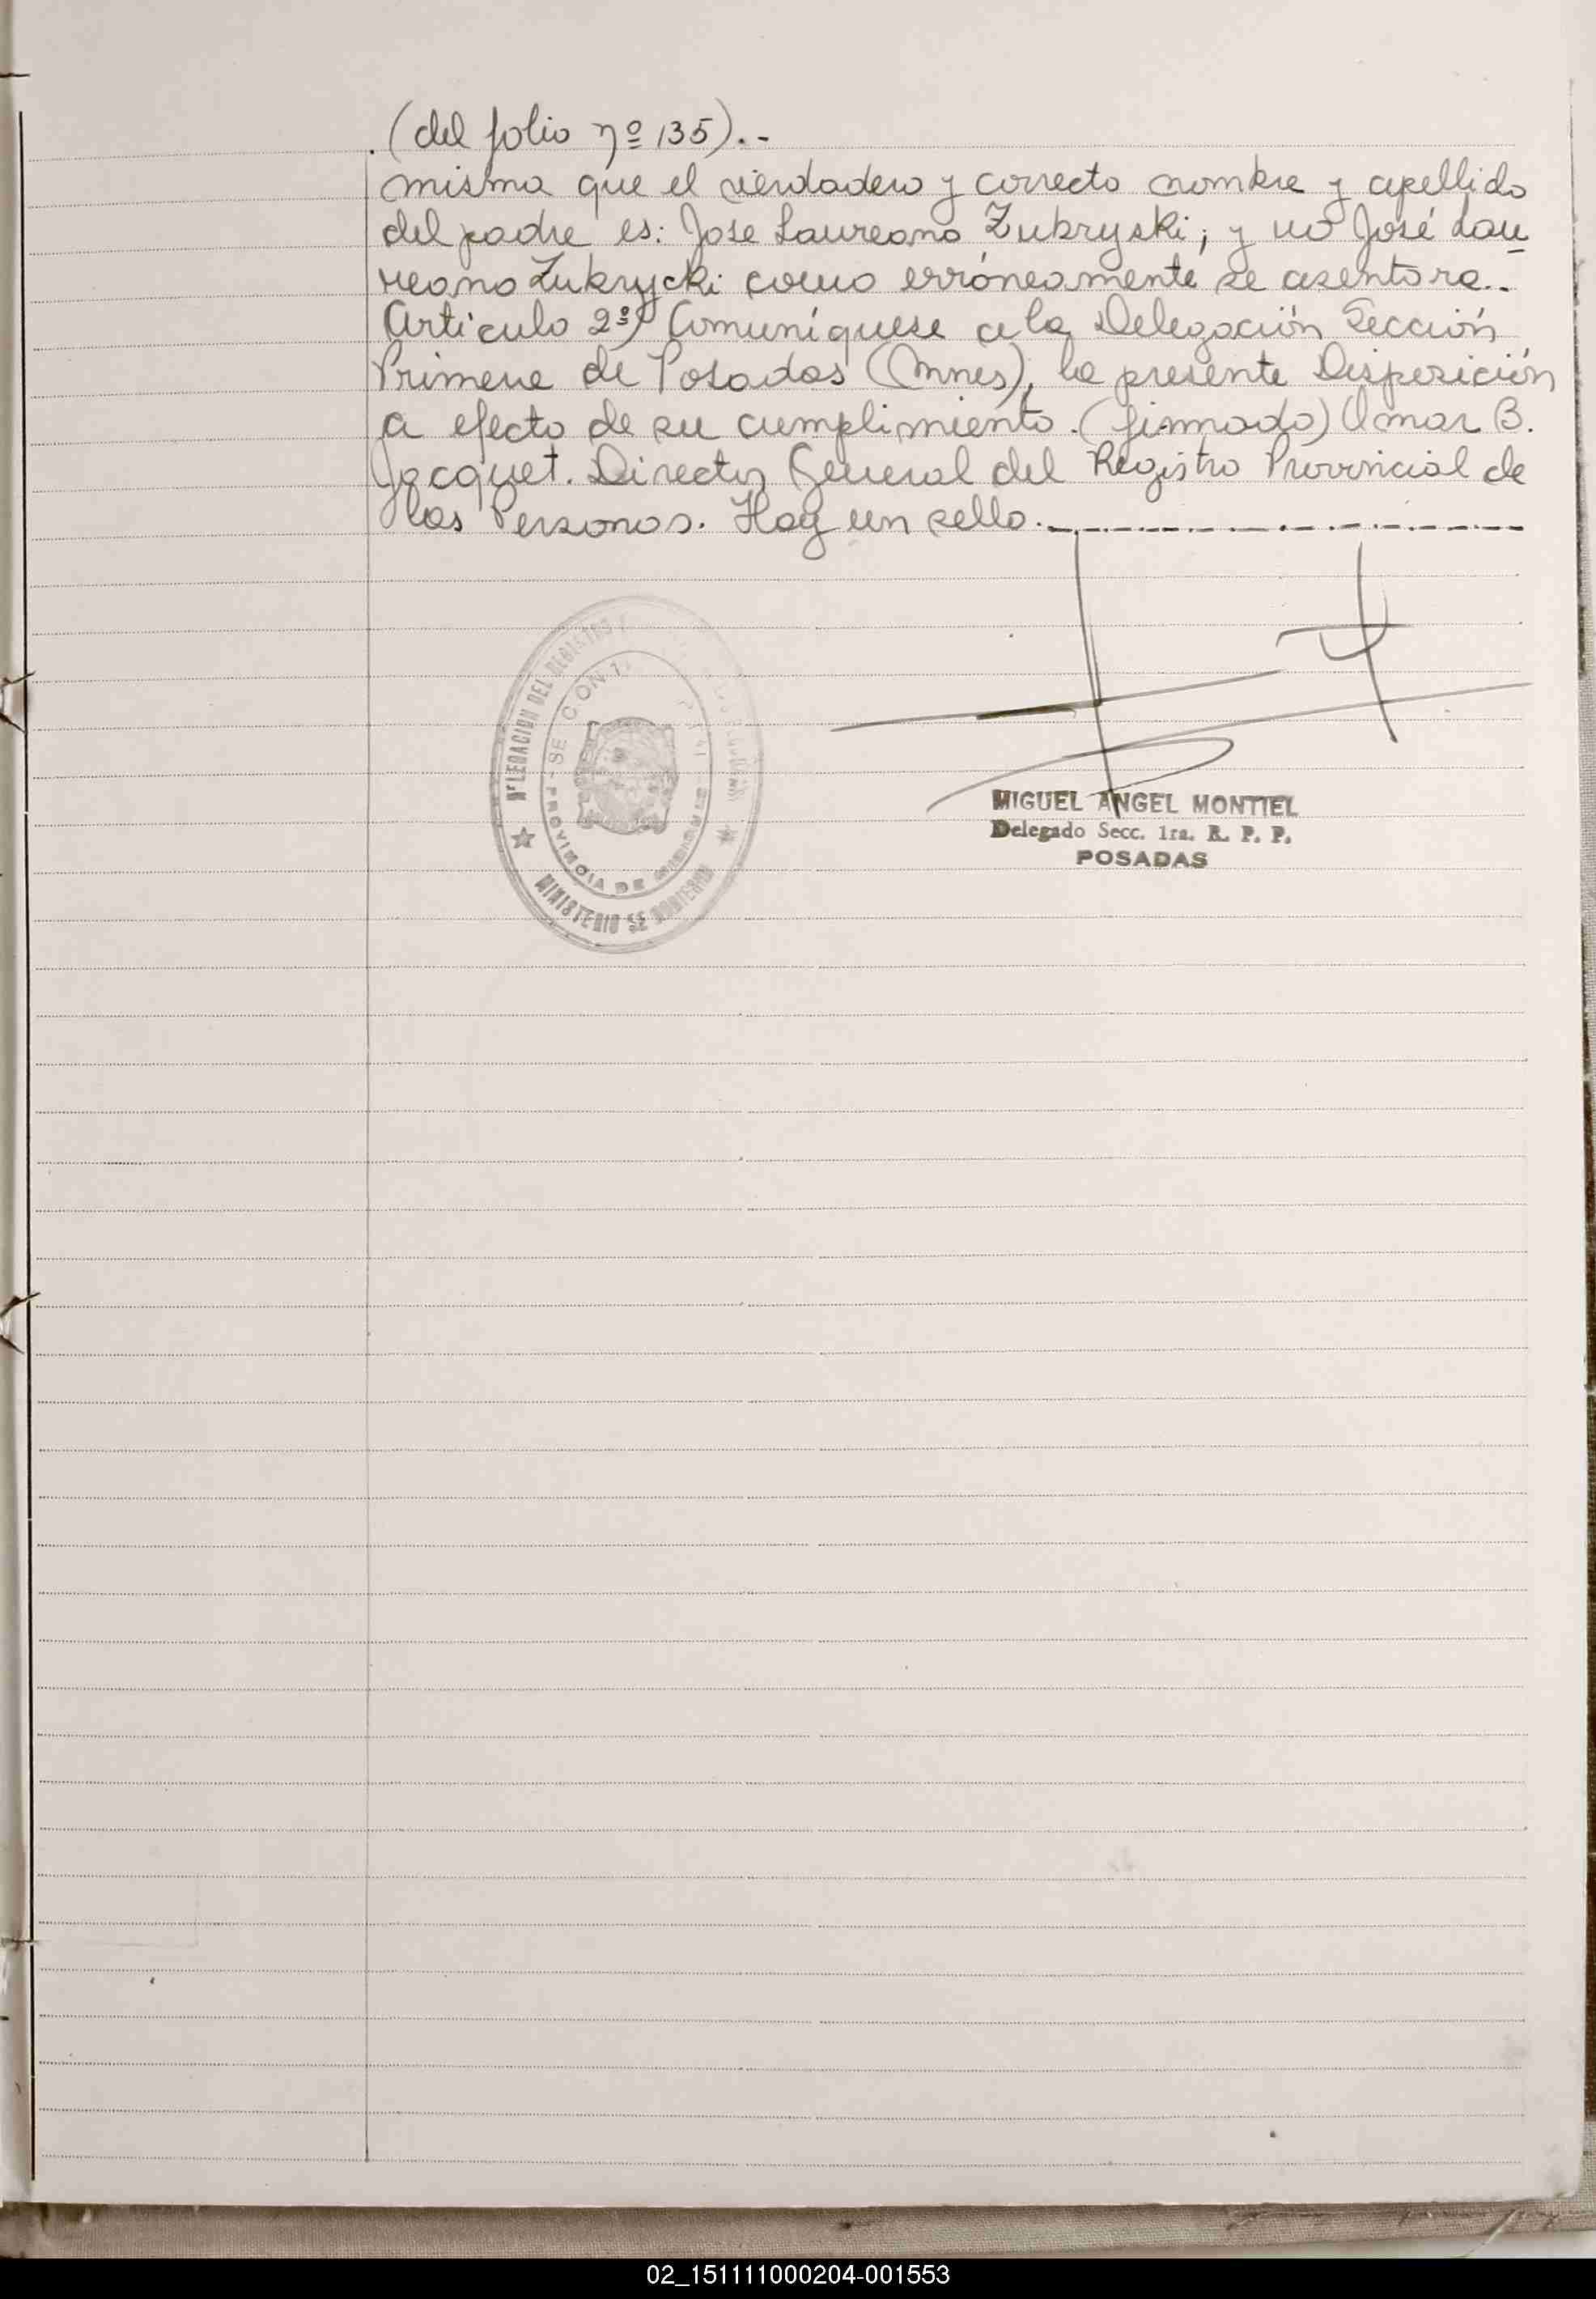 (del folio nº 135).-
misma que el verdadero y correcto nombre y apellido
del padre es: Jose Laureano Zukryski; y no José Lau
reano Zukrycki como erróneamente se asentara.-
Artículo 2º) Comuníquese a la Delegación Sección
Primera de Posadas (Mnes), la presente Disposición
a efecto de su cumplimiento. (firmado) Omar B.
Jacquet. Director General del Registro Provincial de
las Personas. Hay un sello.
DELEGACION DEL REGISTRO
PROVINCIA DE MISIONES
MINISTERIO DE GOBIERNO
MIGUEL ANGEL MONTIEL
Delegado Secc. 1ra. R. P. P.
POSADAS
02_151111000204-001553